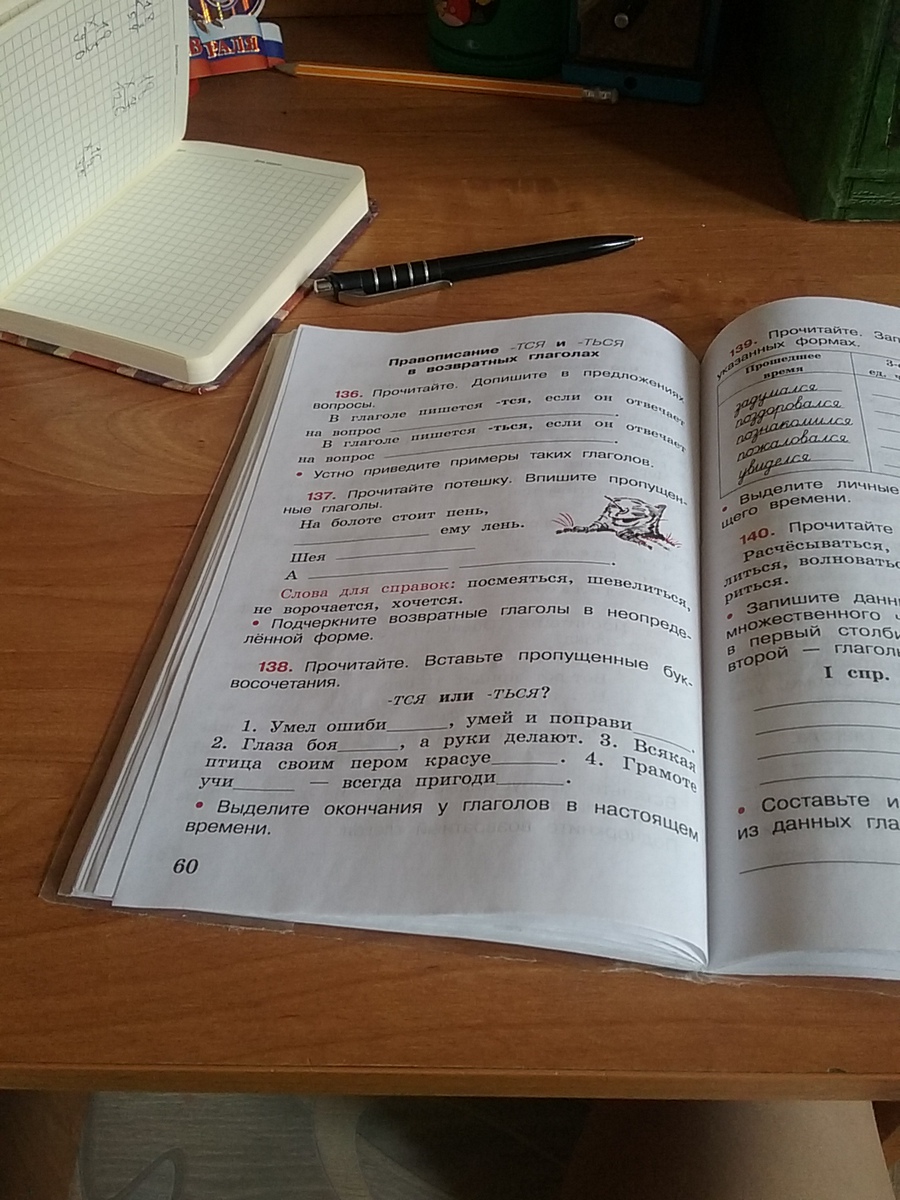 ВРАЛЯ
Правописание -ТСЯ и -ТЬСЯ
в возвратных глаголах
136. Прочитайте. Допишите в предложениях
вопросы.
В глаголе пишется -тся, если он отвечает
на вопрос ____________.
В глаголе пишется -ться, если он отвечает
на вопрос ____________.
• Устно приведите примеры таких глаголов.
137. Прочитайте потешку. Впишите пропущен-
ные глаголы.
На болоте стоит пень,
____________ ему лень.
Шея ____________
А ____________ ____________.
Слова для справок: посмеяться, шевелиться,
не ворочается, хочется.
• Подчеркните возвратные глаголы в неопреде-
лённой форме.
138. Прочитайте. Вставьте пропущенные бук-
восочетания.
-ТСЯ или -ТЬСЯ?
1. Умел ошиби_____, умей и поправи_____.
2. Глаза боя_____, а руки делают. 3. Всякая
птица своим пером красуе_____. 4. Грамоте
учи_____ — всегда пригоди_____.
• Выделите окончания у глаголов в настоящем
времени.
60
139. Прочитайте. Зап
указанных формах.
Прошедшее
время
3-
ед. ч
задумался
поздоровался
познакомился
пожаловался
увиделся
• Выделите личные
щего времени.
140. Прочитайте
Расчёсываться,
литься, волновать
риться.
• Запишите данн
множественного ч
в первый столби
второй — глагол
I спр.
• Составьте и
из данных гла